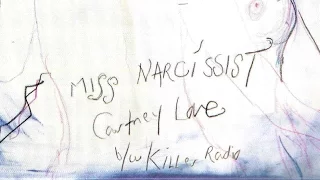 MISS NARCISSIST
Courtney Love
b/w Killer Radio